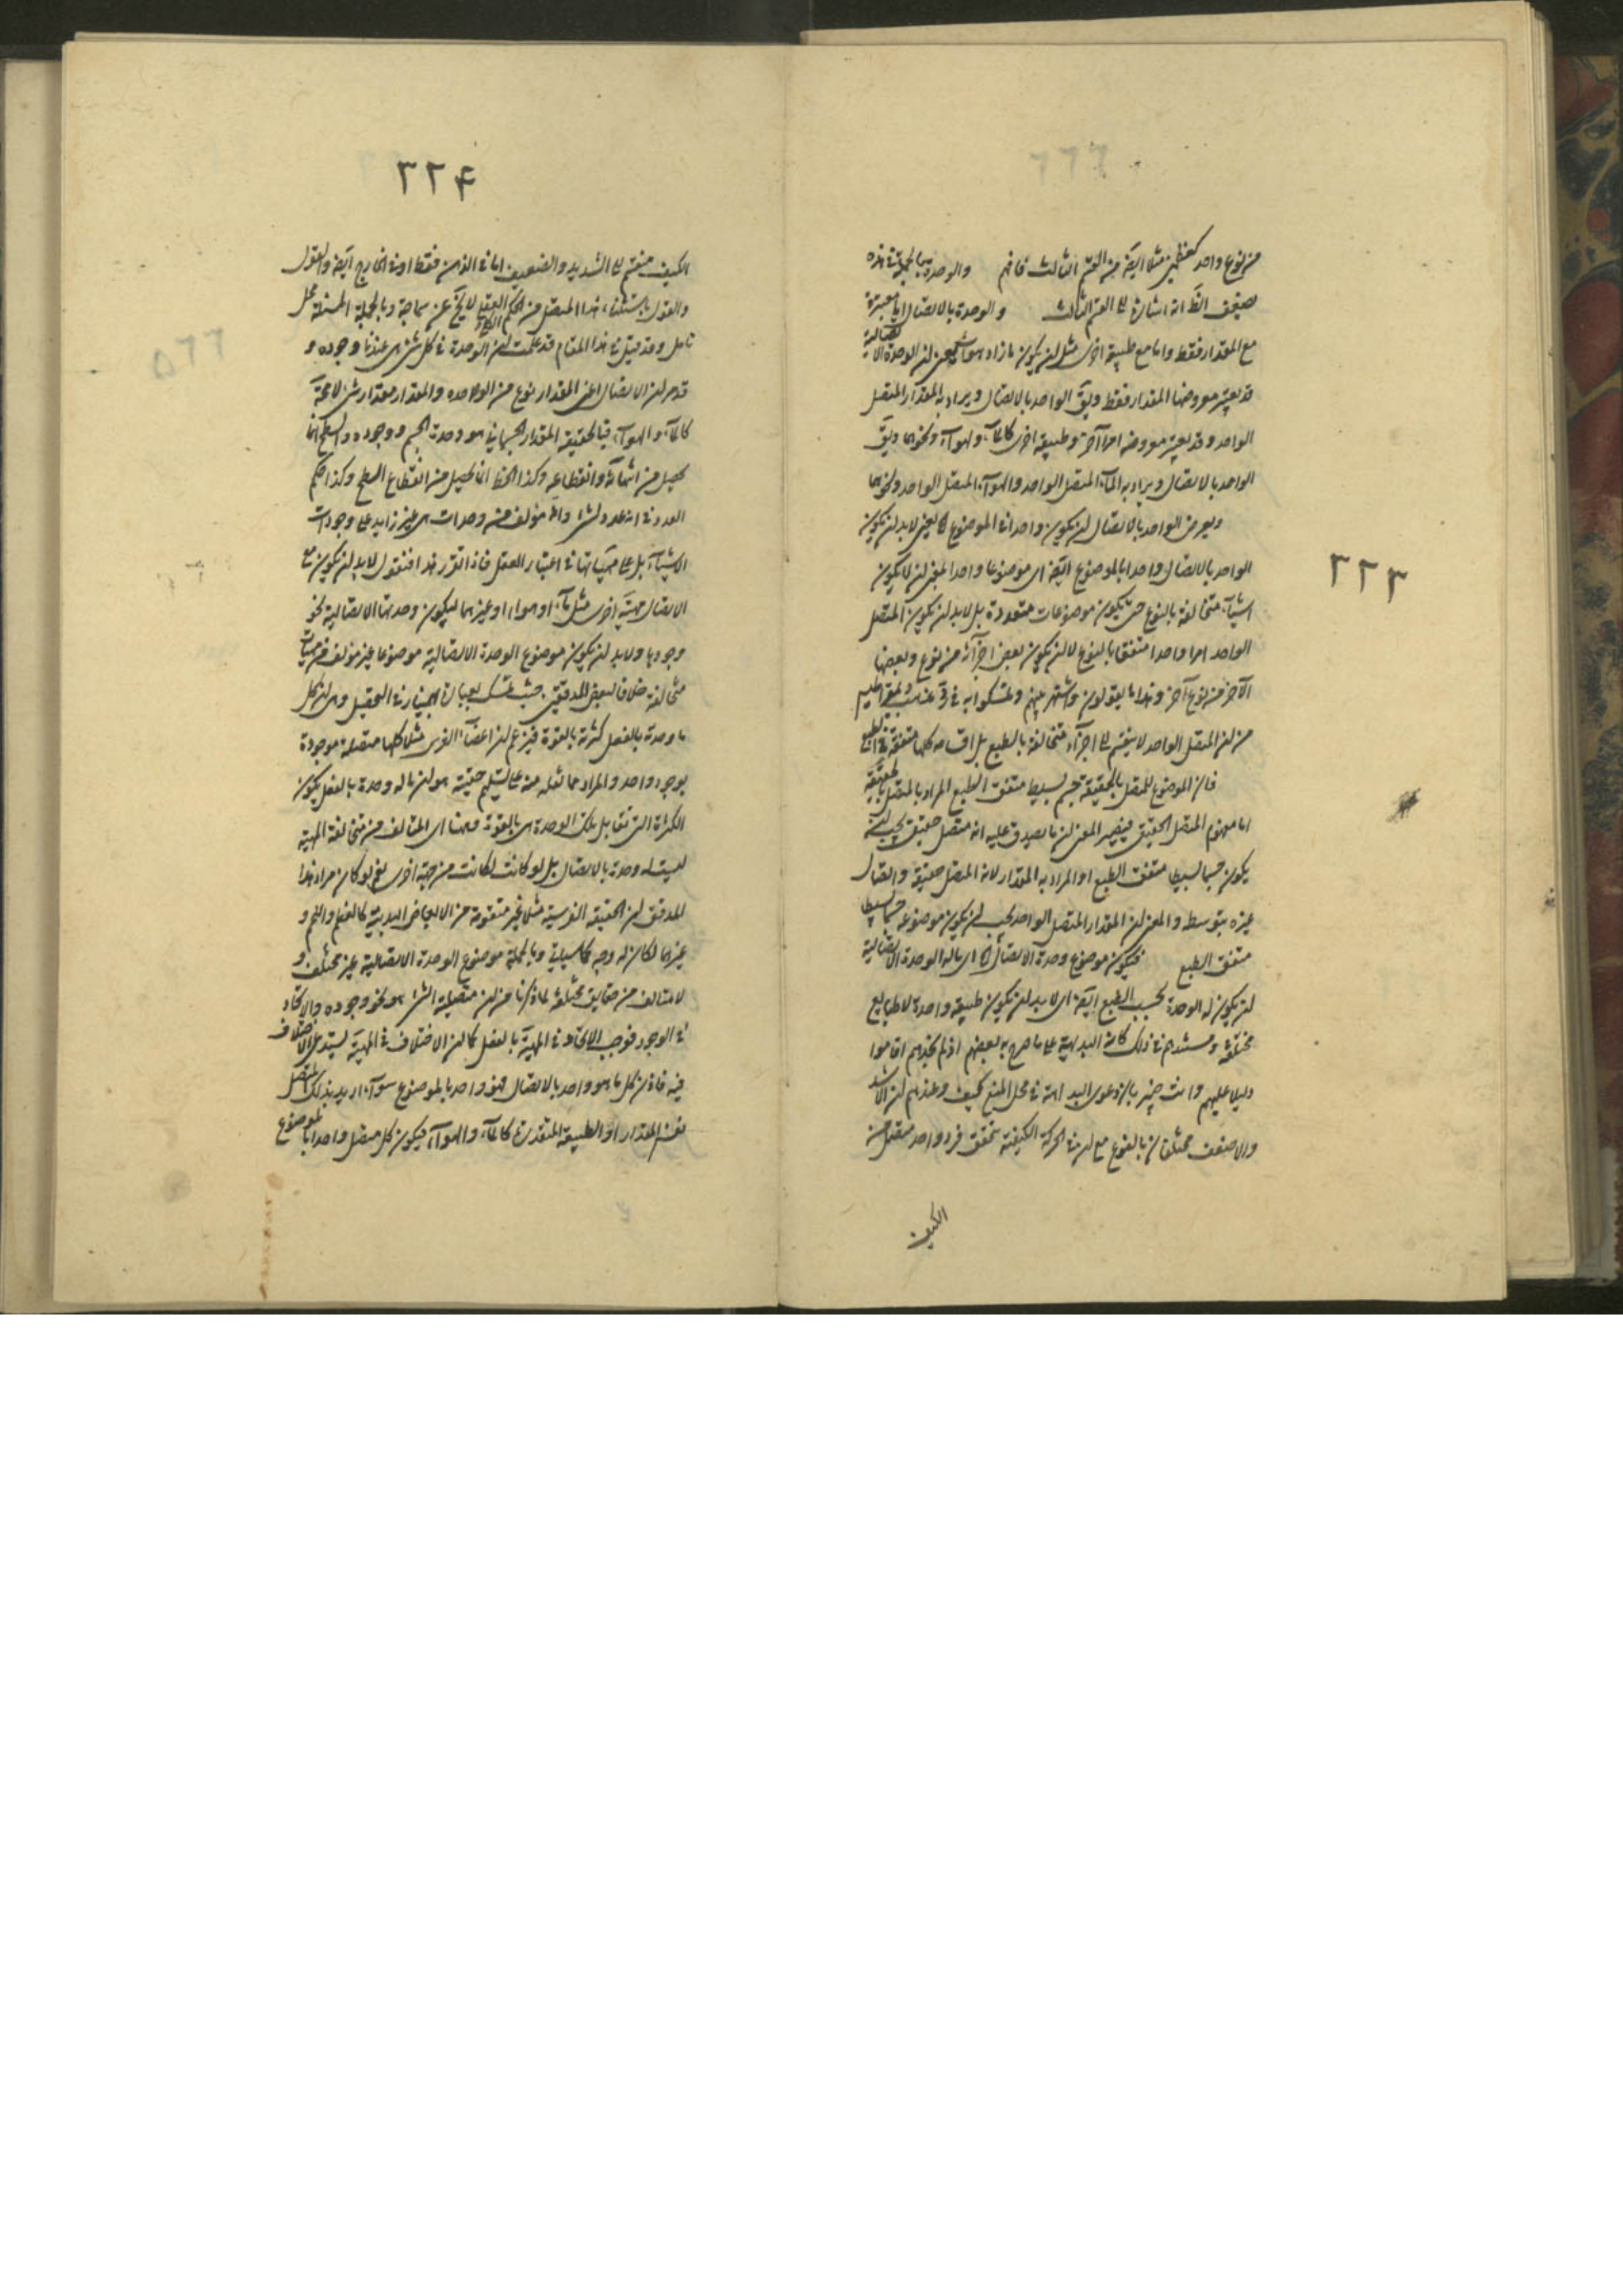 ٣٢٣
من نوع واحد كعظمين مثلا ايضا من القسم الثالث فافهم والوحدة بها بالجملة في هذه
ضعيف الظ انه اشارة الى القسم الثالث والوحدة بالاتصال اما معتبرة
مع المقدار فقط واما مع طبيعة اخرى مثل ان يكون ماء او هواء يعنى ان الوحدة الاتصالية
قد يعتبر معروضها المقدار فقط ويق الواحد بالاتصال ويراد به المقدار المتصل
الواحد وقد يعتبر معروضه امرا آخر وطبيعة اخرى كالمآء والهوآء ونحوهما ويق
الواحد بالاتصال ويراد به المآء المتصل الواحد والهوآء المتصل الواحد ونحوهما
ويعرض الواحد بالاتصال ان يكون واحدا في الموضوع اه يعنى لابد ان يكون
الواحد بالاتصال واحدا بالموضوع ايضا اى موضوعا واحدا بمعنى ان لا يكون
اشيآء متخالفة بالنوع حتى يكون موضوعات متعددة بل لابد ان يكون المتصل
الواحد امرا واحدا متفقا بالنوع لا ان يكون بعض اجزآئه من نوع وبعضها
الآخر من نوع آخر وهذا ما يقولون واشتهر بينهم وتمسكوا به في
من ان المتصل الواحد لا ينقسم الى اجزآء متخالفة بالطبع بل اقسامه كلها متفقة في الطبع
فان الموضوع للمتصل بالحقيقة جسم بسيط متفق الطبع المراد بالمتصل بالحقيقة
اما مفهوم المتصل الحقيقى فيصير المعنى ان ما يصدق عليه انه متصل حقيقى يجب ان
يكون جسما بسيطا متفق الطبع او المراد به المقدار لانه المتصل حقيقة واتصال
غيره بتوسطه والمعنى ان المقدار المتصل الواحد يجب ان يكون موضوعه جسما بسيطا
متفق الطبع فيكون موضوع وحدة الاتصال اه اى ما له الوحدة الاتصالية
ان يكون له الوحدة بحسب الطبع ايضا اى لابد ان يكون طبيعة واحدة لا طبايع
مختلفة ومستندهم في ذلك كانه البديهة على ما صرح به بعضهم اذ لم نجدهم اقاموا
دليلا عليهم وانت خبير بان دعوى البداهة في محل المنع كيف وعندهم ان الاشد
والاضعف مختلفان بالنوع مع ان في الحركة الكيفية يتحقق فرد واحد متصل من
الكيف
٣٢۴
الكيف منقسم الى الشديد والضعيف اما في الذهن فقط او في الخارج ايضا والقول
والقول باستثناء هذا المتصل من الحكم العقلى لا يخ عن سماجة وبالجملة المسئلة محل
تامل وقد قيل في هذا المقام قد علمت ان الوحدة في كل شئ هى عندنا وجوده و
قد مر ان الاتصال اعنى المقدار نوع من الوحده والمقدار مقدار شئ لا محة
كالمآء والهوآء فبالحقيقة المقدار الجسمانى هو وحدة الجسم ووجوده والسطح انما
يحصل من انتهائه وانقطاعه وكذا الخط انما يحصل من انقطاع السطح وكذا حكم
العدد في انه عدد لشئ وانه مؤلف من وحدات هى غير زايد على وجودات
الاشيآء بل على مهياتها في اعتبار العقل فاذا تقرر هذا فنقول لابد ان يكون مع
الاتصال مهية اخرى مثل مآء او هوآء او غيرهما ليكون وحدتها الاتصالية نحو
وجودها ولابد ان يكون موضوع الوحدة الاتصالية موضوعا غير مؤلف من مهيات
متخالفة خلافا لبعض المدققين حيث تمسك بعبارة بهمنيار في التحصيل وهى ان كل
ما وحدته بالفعل كثرته بالقوة فيزعم ان اعضآء الفرس مثلا كلها متصلة موجودة
بوجود واحد والمراد مما نقله منه على تسليم حقيته هو ان ما له وحدة بالفعل يكون
الكثرة التى تقابل تلك الوحدة هى بالقوة وهنا اى المتالف من متخالفة المهية
ليست له وحدة بالاتصال بل لو كانت لكانت من جهة اخرى نعم لو كان مراد هذا
المدقق ان الحقيقة الفرسية مثلا غير متقومة من الابعاض البدنية كالعظم واللحم و
غيرهما لكان له وجه كما سياتى وبالجملة موضوع الوحدة الاتصالية غير مختلف و
لا متالف من حقايق مختلفة لما ذكرنا من ان متصلية الشئ هو نحو وجوده والاتحاد
في الوجود فوجب الاتحاد في المهية بالفعل كما ان الاختلاف في المهية يستدعى الاختلاف
فيه فاذن كل ما هو واحد بالاتصال فهو واحد بالموضوع سوآء اريد بذلك المتصل
نفس المقدار او الطبيعة المتقدرة كالمآء والهوآء فيكون كل متصل واحدا بالموضوع